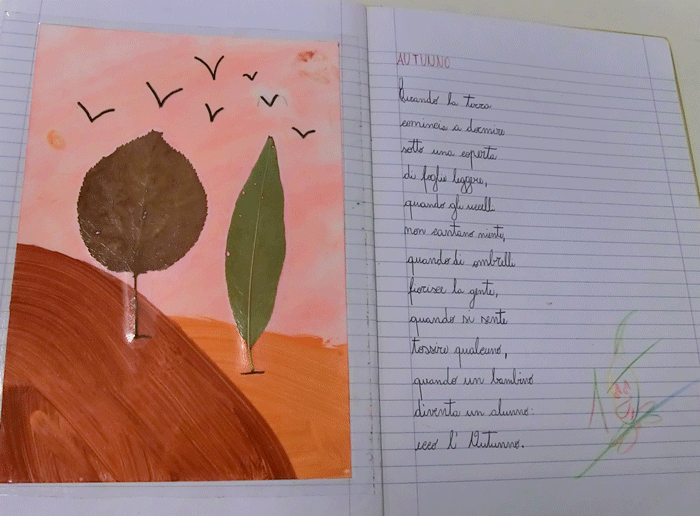 AUTUNNO
Quando la terra
comincia a dormire
sotto una coperta
di foglie leggere,
quando gli uccelli
non cantano niente,
quando di ombrelli
fiorisce la gente,
quando si sente
tossire qualcuno,
quando un bambino
diventa un alunno:
ecco l'Autunno.